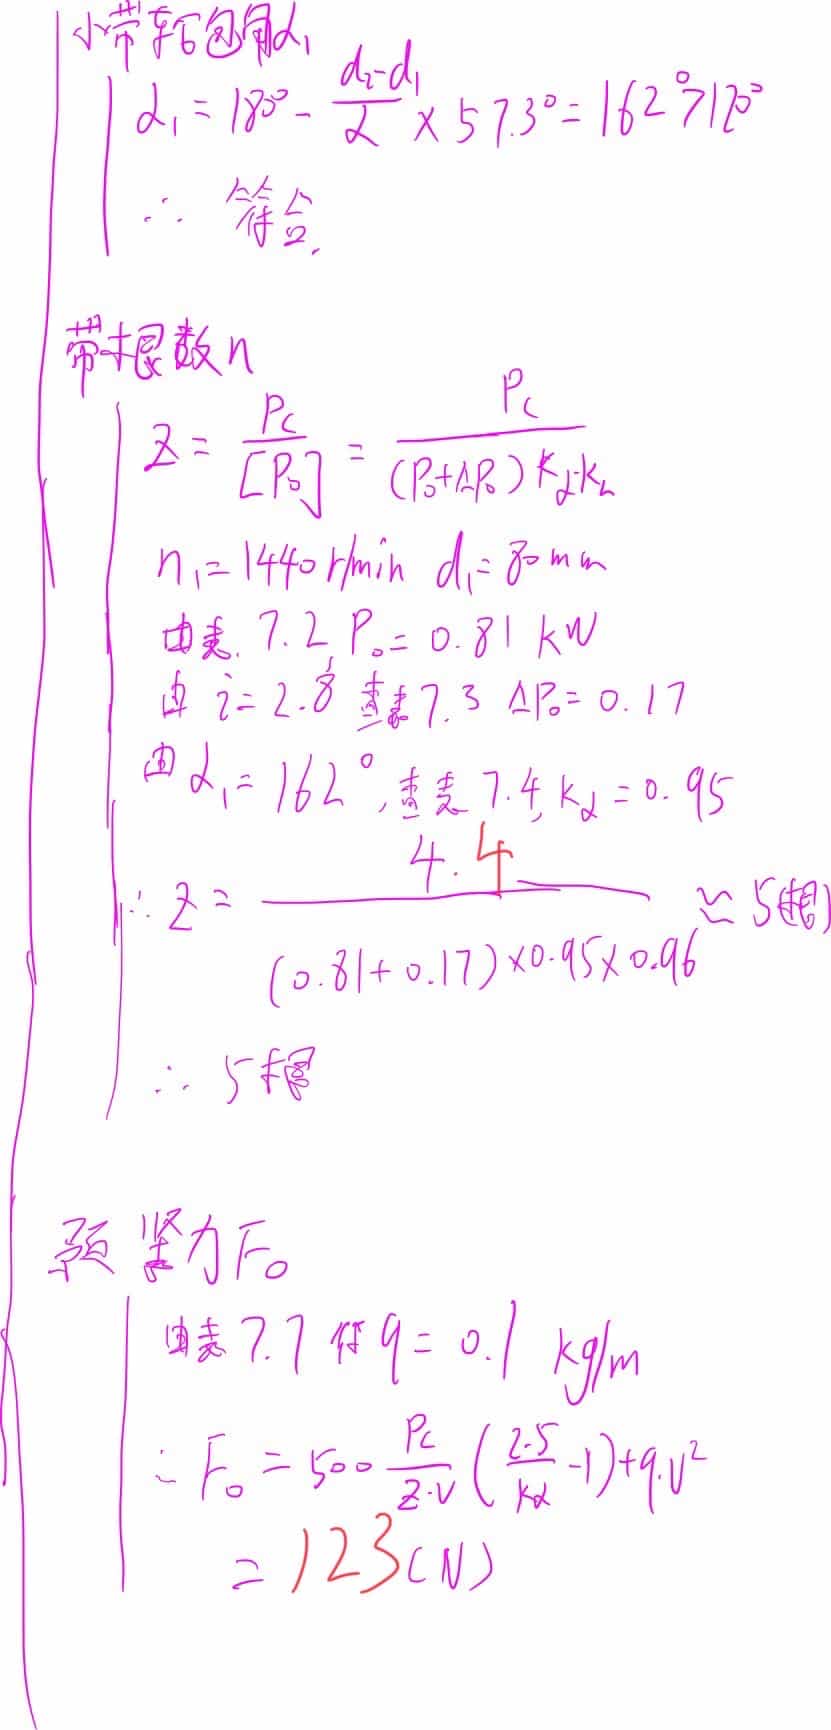 小带轮包角α₁
α₁ = 180° - (d₂-d₁)/α × 57.3° = 162° > 120°
∴ 符合.
带根数n
Z = Pc/[P₀] = Pc/((P₀+ΔP₀)Kα·KL)
n₁=1440 r/min d₁=80mm
由表. 7.2, P₀= 0.81 kW
由 i=2.8 查表7.3 ΔP₀= 0.17
由α₁=162°, 查表7.4, Kα=0.95
∴ Z = 4.4/((0.81+0.17)×0.95×0.96) ≈ 5(根)
∴ 5根
预紧力F₀
由表7.7得 q= 0.1 kg/m
∴ F₀ = 500 Pc/(Z·V) (2.5/Kα -1)+q·V²
= 123(N)